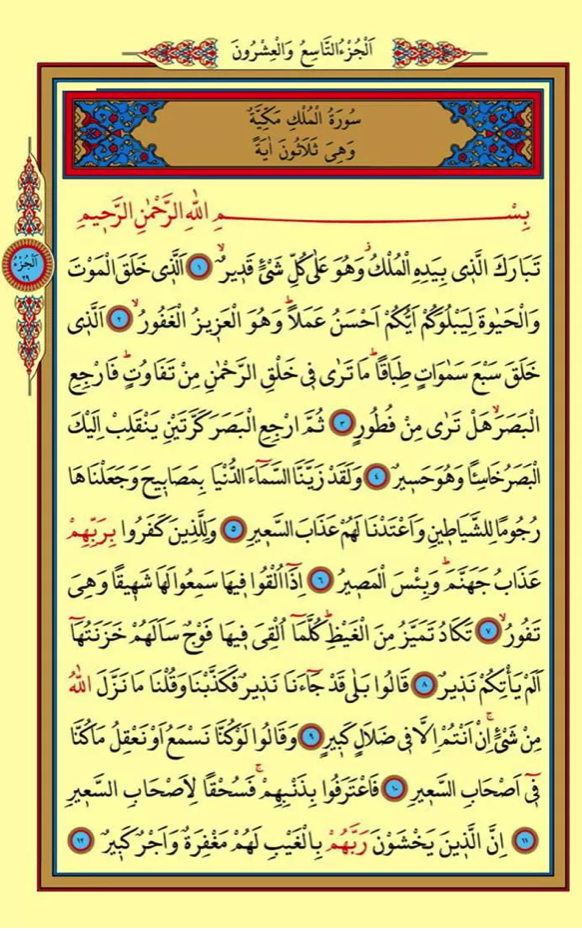 اَلْجُزْءُ التَّاسِعُ وَالْعِشْرُونَ
سُورَةُ الْمُلْكِ مَكِّيَّةٌ
وَهِىَ ثَلَاثُونَ اٰيَةً
اَلْجُزْءُ
٢٩
بِسْمِ اللّٰهِ الرَّحْمٰنِ الرَّحٖيمِ
تَبَارَكَ الَّذٖى بِيَدِهِ الْمُلْكُؗ وَهُوَ عَلٰى كُلِّ شَىْءٍ قَدٖيرٌۙ ﴿١﴾ اَلَّذٖى خَلَقَ الْمَوْتَ
وَالْحَيٰوةَ لِيَبْلُوَكُمْ اَيُّكُمْ اَحْسَنُ عَمَلاًؕ وَهُوَ الْعَزٖيزُ الْغَفُورُۙ ﴿٢﴾ اَلَّذٖى
خَلَقَ سَبْعَ سَمٰوَاتٍ طِبَاقاًؕ مَا تَرٰى فٖى خَلْقِ الرَّحْمٰنِ مِنْ تَفَاوُتٍؕ فَارْجِعِ
الْبَصَرَۙ هَلْ تَرٰى مِنْ فُطُورٍ ﴿٣﴾ ثُمَّ ارْجِعِ الْبَصَرَ كَرَّتَيْنِ يَنْقَلِبْ اِلَيْكَ
الْبَصَرُ خَاسِئاً وَهُوَ حَسٖيرٌ ﴿٤﴾ وَلَقَدْ زَيَّنَّا السَّمَٓاءَ الدُّنْيَا بِمَصَابٖيحَ وَجَعَلْنَاهَا
رُجُوماً لِلشَّيَاطٖينِ وَاَعْتَدْنَا لَهُمْ عَذَابَ السَّعٖيرِ ﴿٥﴾ وَلِلَّذٖينَ كَفَرُوا بِرَبِّهِمْ
عَذَابُ جَهَنَّمَؕ وَبِئْسَ الْمَصٖيرُ ﴿٦﴾ اِذَٓا اُلْقُوا فٖيهَا سَمِعُوا لَهَا شَهٖيقاً وَهِىَ
تَفُورُۙ ﴿٧﴾ تَكَادُ تَمَيَّزُ مِنَ الْغَيْظِؕ كُلَّمَٓا اُلْقِىَ فٖيهَا فَوْجٌ سَاَلَهُمْ خَزَنَتُهَٓا
اَلَمْ يَأْتِكُمْ نَذٖيرٌ ﴿٨﴾ قَالُوا بَلٰى قَدْ جَٓاءَنَا نَذٖيرٌ فَكَذَّبْنَا وَقُلْنَا مَا نَزَّلَ اللّٰهُ
مِنْ شَىْءٍۚ اِنْ اَنْتُمْ اِلَّا فٖى ضَلَالٍ كَبٖيرٍ ﴿٩﴾ وَقَالُوا لَوْ كُنَّا نَسْمَعُ اَوْ نَعْقِلُ مَا كُنَّا
فٖٓى اَصْحَابِ السَّعٖيرِ ﴿١٠﴾ فَاعْتَرَفُوا بِذَنْبِهِمْۚ فَسُحْقاً لِاَصْحَابِ السَّعٖيرِ
﴿١١﴾ اِنَّ الَّذٖينَ يَخْشَوْنَ رَبَّهُمْ بِالْغَيْبِ لَهُمْ مَغْفِرَةٌ وَاَجْرٌ كَبٖيرٌ ﴿١٢﴾